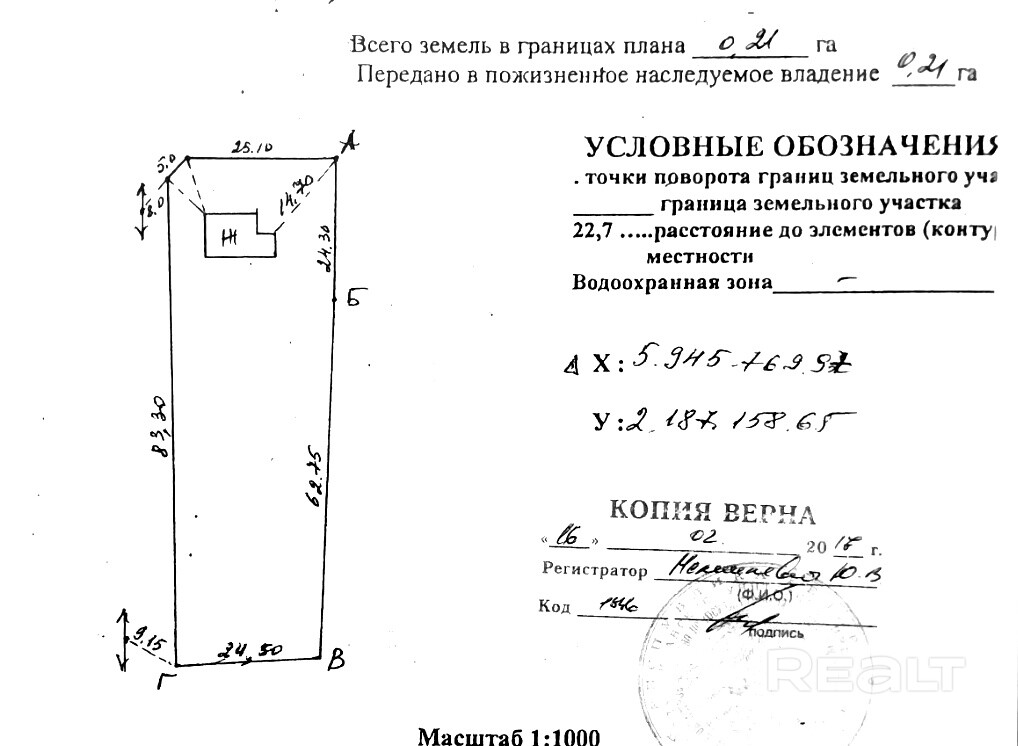 Всего земель в границах плана 0,21 га
Передано в пожизненное наследуемое владение 0,21 га
УСЛОВНЫЕ ОБОЗНАЧЕНИЯ
. точки поворота границ земельного уча
граница земельного участка
22,7 .....расстояние до элементов (конту
местности
Водоохранная зона –
X: 5.945.769.97
У: 2.187.158.65
КОПИЯ ВЕРНА
«16» 02. 2017 г.
Регистратор Ю.В
(Ф.И.О.)
Код
подпись
Realt
25.10
А
5.0
8.0
14,70
Ж
24.30
Б
83,30
62.75
9,15
24,50
В
Г
Масштаб 1:1000